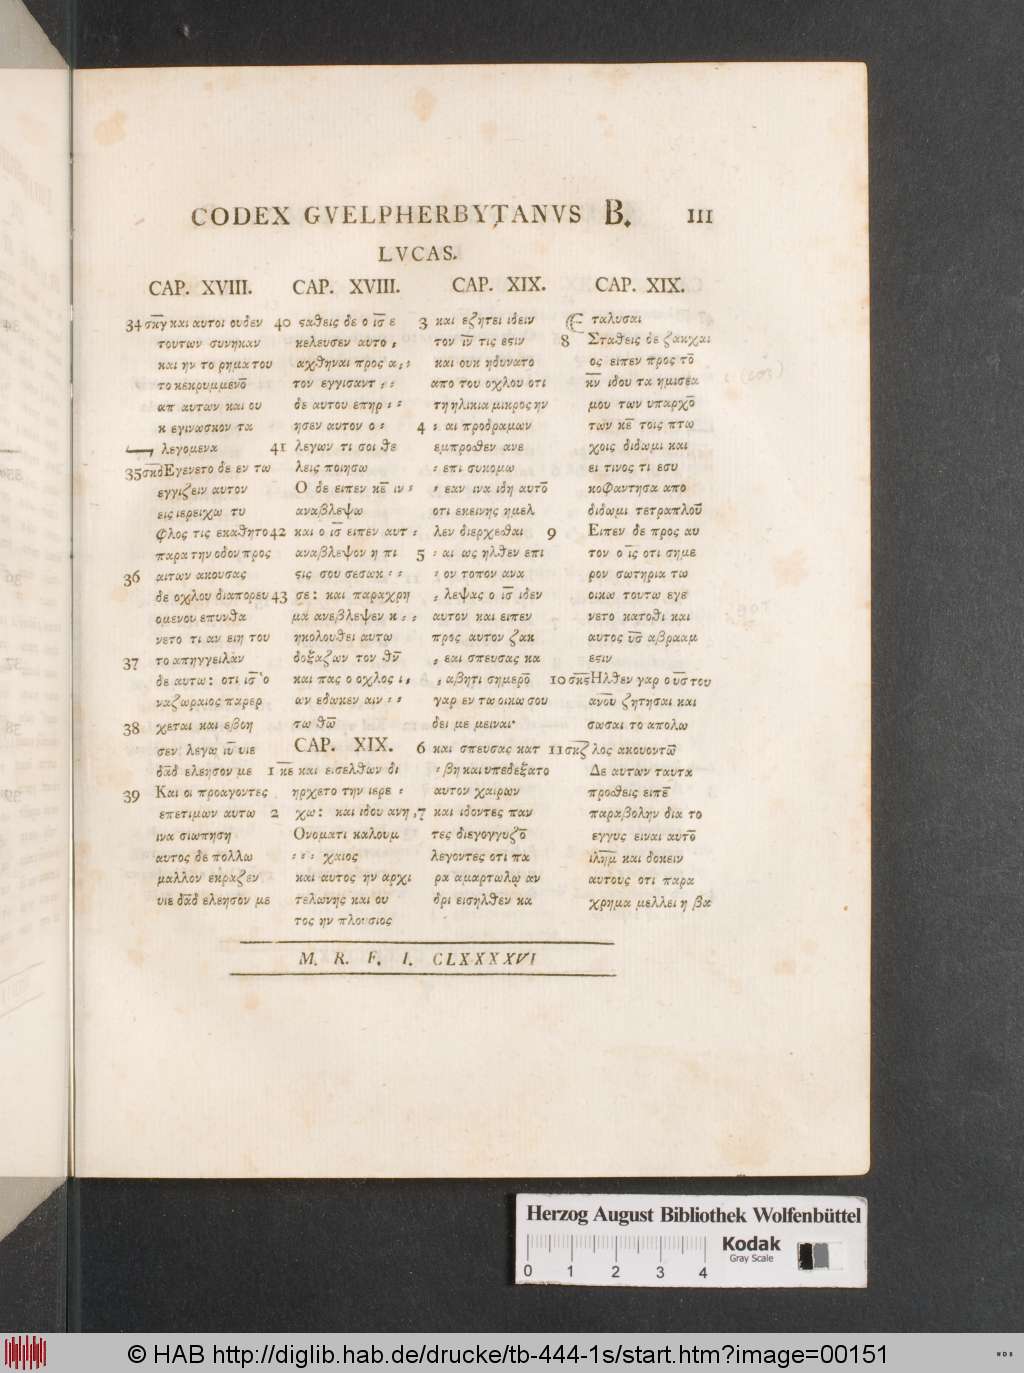 CODEX GVELPHERBYTANVS B. III
LVCAS.
CAP. XVIII.
34 σκγ και αυτοι ουδεν
τουτων συνηκαν
και ην το ρημα του
το κεκρυμμενο̅
απ αυτων και ου
κ εγινωσκον τα
λεγομενα
35 σκδ Εγενετο δε εν τω
εγγιζειν αυτον
εις ιερειχω τυ
φλος τις εκαθητο
παρα την οδον προς
36 αιτων ακουσας
δε οχλου διαπορευ
ομενου επυνθα
νετο τι αν ειη του
37 το απηγγειλαν
δε αυτω: οτι ις̅ ο
ναζωραιος παρερ
38 χεται και εβοη
σεν λεγω ιυ̅ υιε
δα̅δ ελεησον με
39 Και οι προαγοντες
επετιμων αυτω
ινα σιωπηση
αυτος δε πολλω
μαλλον εκραζεν
υιε δα̅δ ελεησον με
CAP. XVIII.
40 ϛαθεις δε ο ις̅ ε
κελευσεν αυτο :
αχθηναι προς α : :
τον εγγισαντ : :
δε αυτου επηρ : :
ησεν αυτον ο :
41 λεγων τι σοι θε
λεις ποιησω
Ο δε ειπεν κε̅ ιν :
αναβλεψω
42 και ο ις̅ ειπεν αυτ :
αναβλεψον η πι
ϛις σου σεσωκ : :
43 σε: και παραχρη
μα ανεβλεψεν κ : :
ηκολουθει αυτω
δοξαζων τον θν̅
και πας ο οχλος ι :
ων εδωκεν αιν : :
τω θω̅
CAP. XIX.
1 κε και εισελθων δι
ηρχετο την ιερε :
2 χω: και ιδου ανη :
Ονοματι καλουμ
: : : χαιος
και αυτος ην αρχι
τελωνης και ου
τος ην πλουσιος
CAP. XIX.
3 και εζητει ιδειν
τον ιν̅ τις εϛιν
και ουκ ηδυνατο
απο του οχλου οτι
τη ηλικια μικρος ην
4 : αι προδραμων
εμπροσθεν ανε
: επι συκομω
: εαν ινα ιδη αυτο̅
οτι εκεινης ημελ
λεν διερχεσθαι
5 : αι ως ηλθεν επι
: ον τοπον ανα
: λεψας ο ις̅ ιδεν
αυτον και ειπεν
προς αυτον ζακ
: εαι σπευσας κα
: αβητι σημερο̅
γαρ εν τω οικω σου
δει με μειναι·
6 και σπευσας κατ
: βη και υπεδεξατο
αυτον χαιρων
7 και ιδοντες παν
τες διεγογγυζο̅
λεγοντες οτι πα
ρα αμαρτωλω αν
δρι εισηλθεν κα
CAP. XIX.
ταλυσαι
8 Σταθεις δε ζακχαι
ος ειπεν προς το̅
κν̅ ιδου τα ημισεα
μου των υπαρχο̅
των κε̅ τοις πτω
χοις διδωμι και
ει τινος τι εσυ
κοφαντησα απο
διδωμι τετραπλου̅
9 Ειπεν δε προς αυ
τον ο ις̅ οτι σημε
ρον σωτηρια τω
οικω τουτω εγε
νετο κατοθι και
αυτος υς̅ αβρααμ
εϛιν
10 σκϛ Ηλθεν γαρ ο υς̅ του
ανου̅ ζητησαι και
σωσαι το απολω
11 σκζ λος ακουοντω̅
Δε αυτων ταυτα
προσθεις ειπε̅
παραβολην δια το
εγγυς ειναι αυτο̅
ιλη̅μ και δοκειν
αυτους οτι παρα
χρημα μελλει η βα
M. R. F. I. CLXXXXVI
Herzog August Bibliothek Wolfenbüttel
Kodak
Gray Scale
0 1 2 3 4
© HAB http://diglib.hab.de/drucke/tb-444-1s/start.htm?image=00151